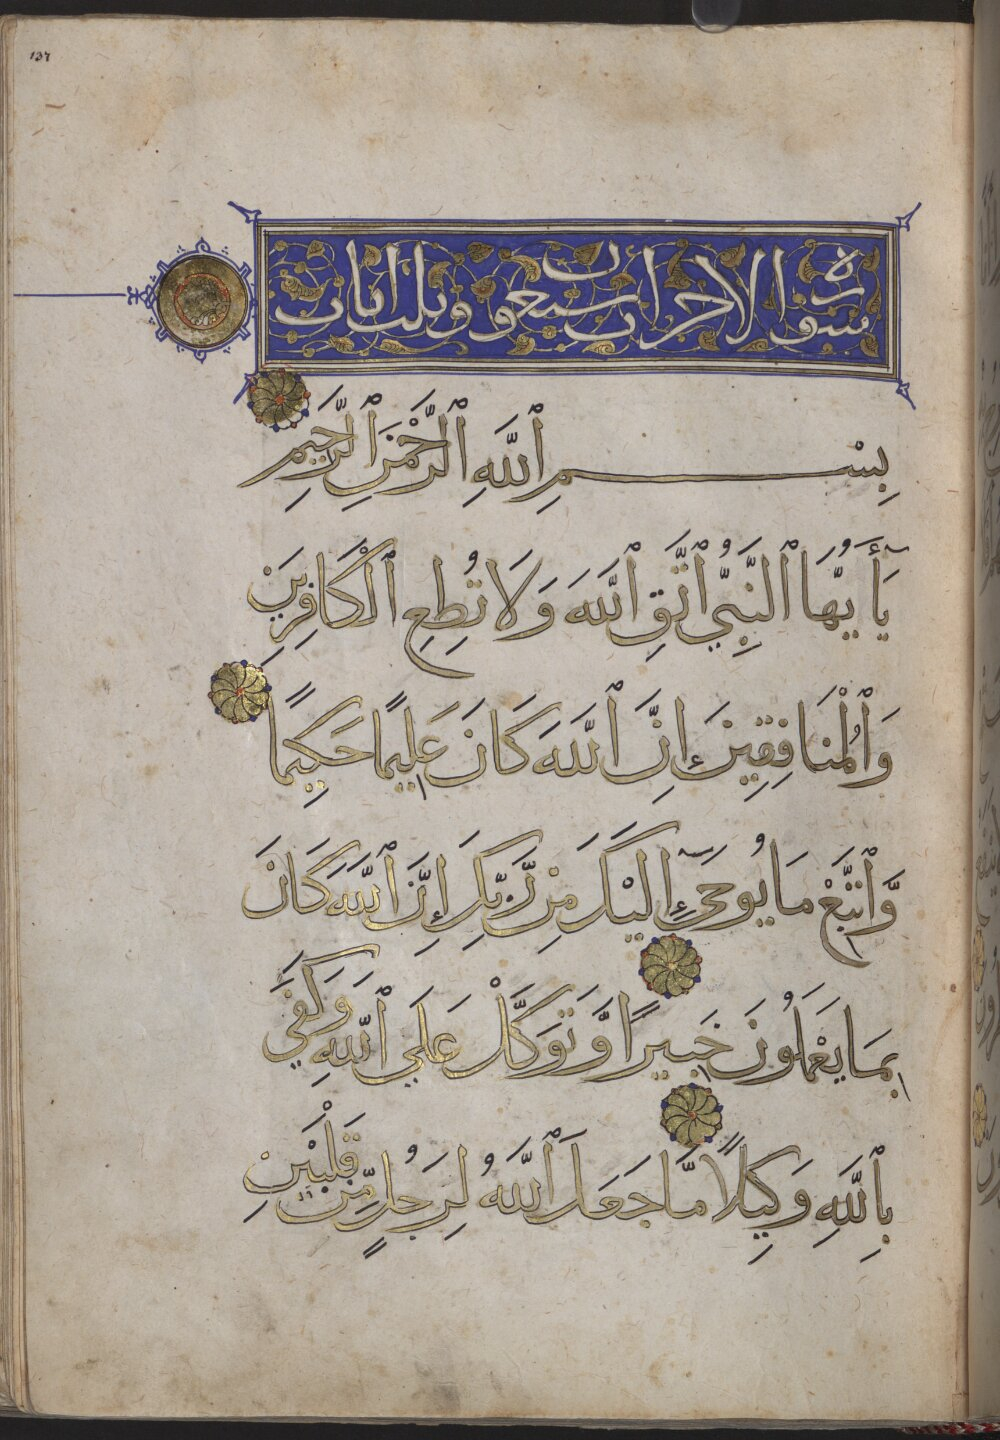 137
سورة الاحزاب سبعون وثلث ايات
بِسْمِ ٱللَّهِ ٱلرَّحْمَنِ ٱلرَّحِيمِ
يَٰٓأَيُّهَا ٱلنَّبِيُّ ٱتَّقِ ٱللَّهَ وَلَا تُطِعِ ٱلْكَافِرِينَ
وَٱلْمُنَافِقِينَ إِنَّ ٱللَّهَ كَانَ عَلِيمًا حَكِيمًا
وَّٱتَّبِعْ مَا يُوحَىٓ إِلَيْكَ مِن رَّبِّكَ إِنَّ ٱللَّهَ كَانَ
بِمَا يَعْمَلُونَ خَبِيرًا وَّتَوَكَّلْ عَلَى ٱللَّهِ وَكَفَى
بِٱللَّهِ وَكِيلًا مَّا جَعَلَ ٱللَّهُ لِرَجُلٍ مِّن قَلْبَيْنِ